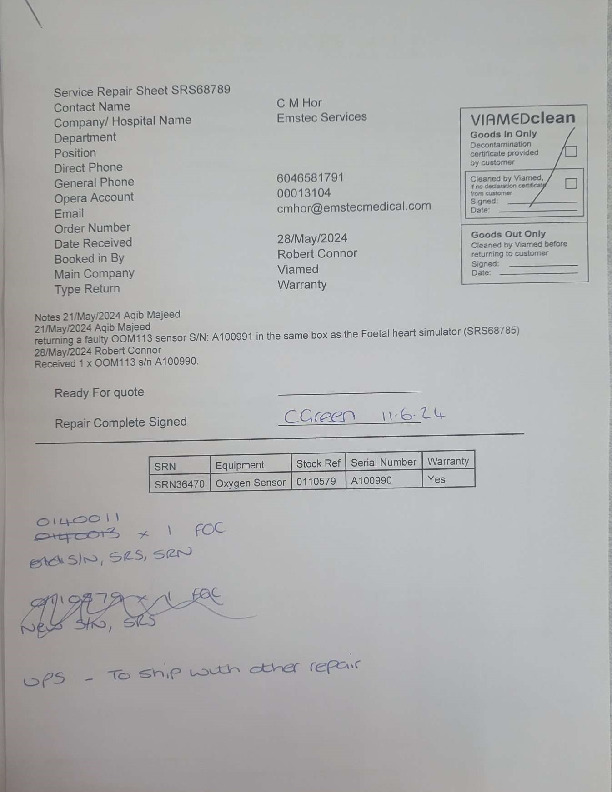 Service Repair Sheet SRS68789
Contact Name C M Hor
Company/ Hospital Name Emstec Services
Department
Position
Direct Phone
General Phone 6046581791
Opera Account 00013104
Email cmhor@emstecmedical.com
Order Number
Date Received 28/May/2024
Booked in By Robert Connor
Main Company Viamed
Type Return Warranty
VIAMEDclean
Goods In Only
Decontamination
certificate provided
by customer
Cleaned by Viamed,
if no declaration certificate
from customer
Signed:
Date:
Goods Out Only
Cleaned by Viamed before
returning to customer
Signed:
Date:
Notes 21/May/2024 Aqib Majeed
21/May/2024 Aqib Majeed
returning a faulty OOM113 sensor S/N: A100991 in the same box as the Foetal heart simulator (SRS68785)
28/May/2024 Robert Connor
Received 1 x OOM113 s/n A100990.
Ready For quote
Repair Complete Signed CGreen 11.6.24
SRN Equipment Stock Ref Serial Number Warranty
SRN36470 Oxygen Sensor 0110579 A100990 Yes
0140011
0140013 x 1 FOC
old S/N, SRS, SRN
x 1 FOC
New S/N, SRS
UPS - To ship with other repair